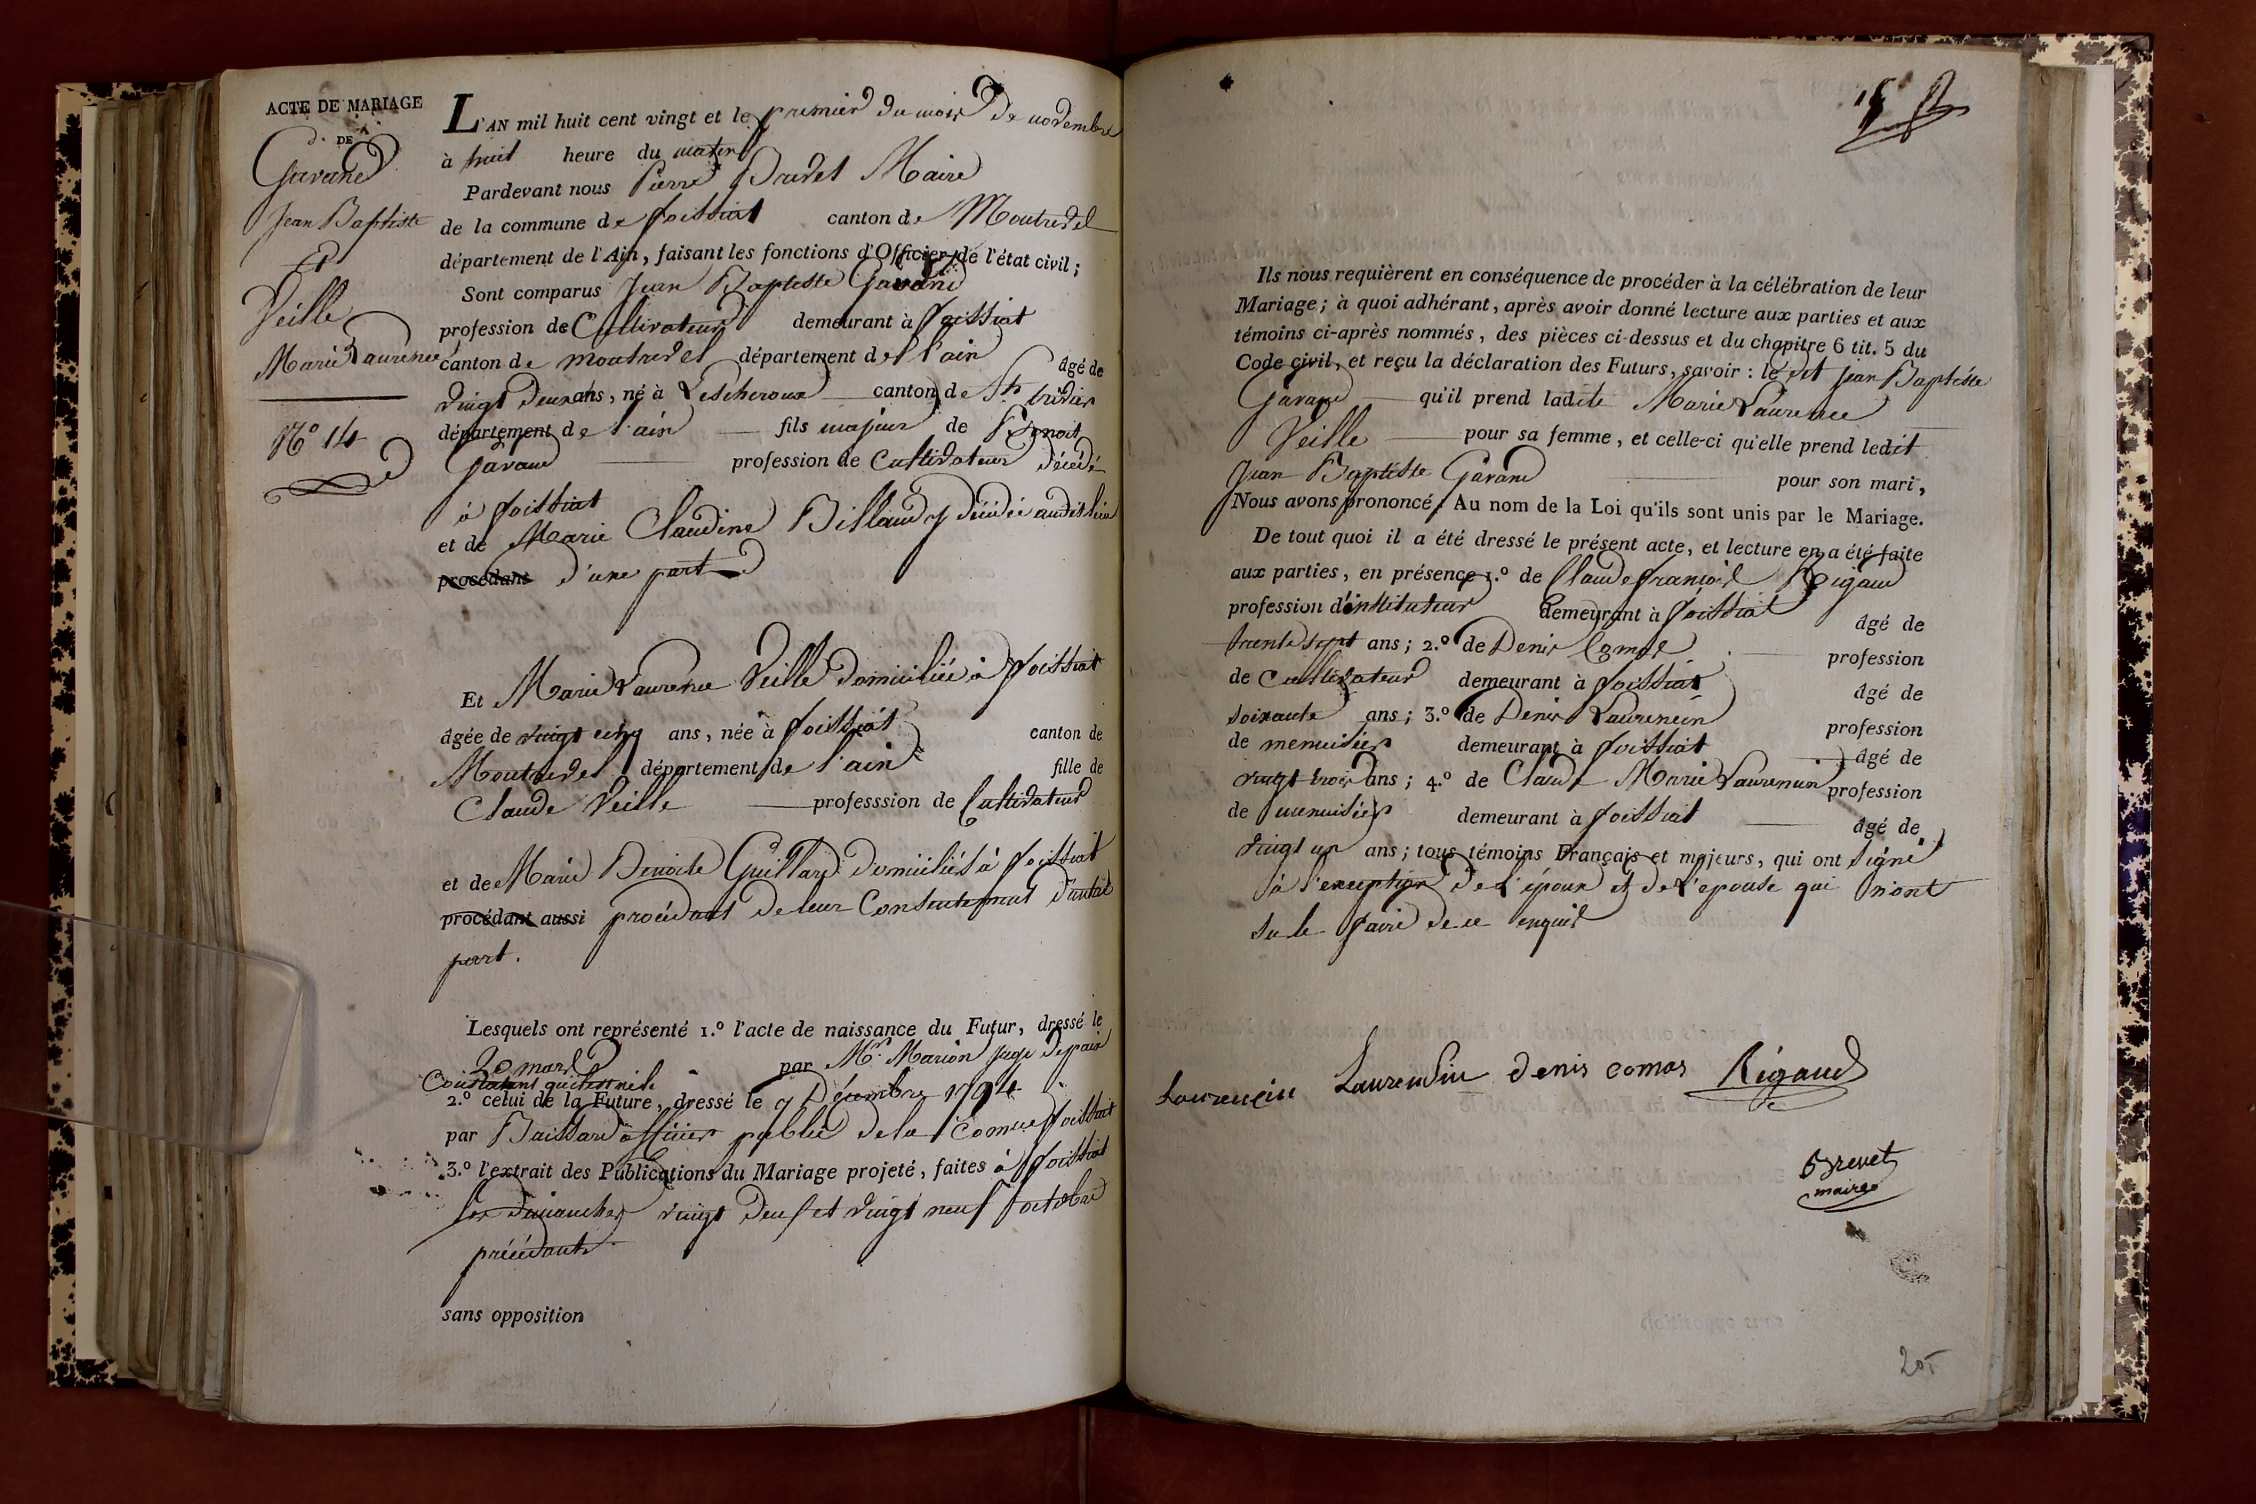 ACTE DE MARIAGE
DE
Gavand
Jean Baptiste
Et
Veille
Marie Laurence
N.º 14
L'AN mil huit cent vingt et le premier du mois de novembre
à huit heure du matin
Pardevant nous Pierre Brevet Maire
de la commune de foissiat canton de Montrevel
département de l'Ain, faisant les fonctions d'Officier de l'état civil ;
Sont comparus Jean Baptiste Gavand
profession de Cultivateur demeurant à foissiat
canton de montrevel département de l'ain âgé de
vingt deux ans, né à Lescheroux canton de St. trivier
département de l'ain fils majeur de Benoit
Gavand profession de Cultivateur décédé
à foissiat
et de Marie Claudine Billaud y décédée audit lieu
procédant d'une part
Et Marie Laurence Veille domiciliée à foissiat
âgée de vingt cinq ans, née à foissiat canton de
Montrevel département de l'ain fille de
Claude Veille professsion de Cultivateur
et de Marie Benoite Guillard domiciliés à foissiat
procédant aussi procédant de leur Consentement d'autre
part.
Lesquels ont représenté 1.º l'acte de naissance du Futur, dressé le
20 mars par Mr. Marion Juge de paix
Constatant qu'il est né le
2.º celui de la Future, dressé le 9 Décembre 1794
par Buissard officier public de la Comune foissiat
3.º l'extrait des Publications du Mariage projeté, faites à foissiat
les dimanches vingt deux et vingt neuf octobre
précédants
sans opposition
Ils nous requièrent en conséquence de procéder à la célébration de leur
Mariage ; à quoi adhérant, après avoir donné lecture aux parties et aux
témoins ci-après nommés, des pièces ci-dessus et du chapitre 6 tit. 5 du
Code civil, et reçu la déclaration des Futurs, savoir : le dit Jean Baptiste
Gavand qu'il prend ladite Marie Laurence
Veille pour sa femme, et celle-ci qu'elle prend ledit
Jean Baptiste Gavand pour son mari,
Nous avons prononcé, Au nom de la Loi qu'ils sont unis par le Mariage.
De tout quoi il a été dressé le présent acte, et lecture en a été faite
aux parties, en présence 1.º de Claude françois Rigaud
profession d'instituteur demeurant à foissiat âgé de
trente sept ans ; 2.º de Denis Comas profession
de Cultivateur demeurant à foissiat âgé de
soixante ans ; 3.º de Denis Laurencin profession
de menuisier demeurant à foissiat âgé de
vingt trois ans ; 4.º de Claude Marie Laurencin profession
de menuisier demeurant à foissiat âgé de
vingt un ans ; tous témoins Français et majeurs, qui ont signé
à l'exception de l'époux et de l'epouse qui n'ont
su le faire de ce enquis
Laurencin Laurencin denis comas Rigaud
Brevet
maire
205